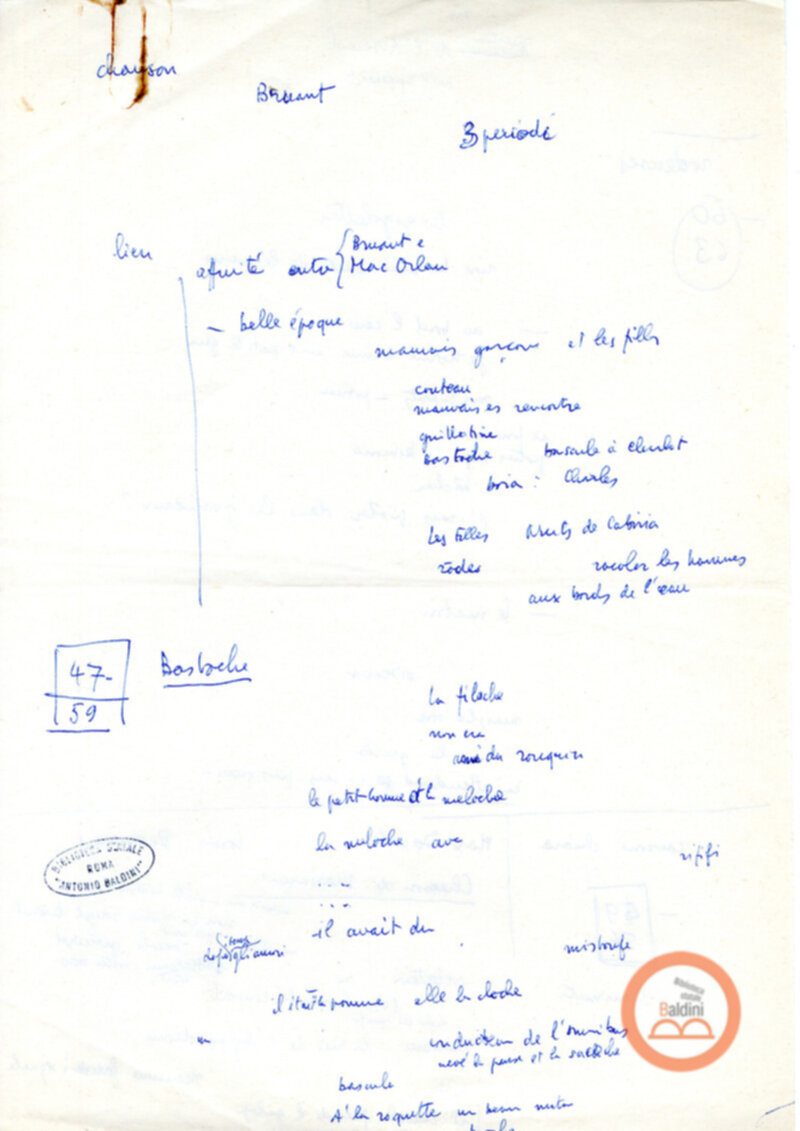 chanson
Bruant
3 periodi
lieu
affinité entre { Bruant e
Mac Orlan
— belle époque
mauvais garçons et les filles
couteau
mauvaises rencontre
guillotine
bastoche bascule à Charlot
boia : Charles
les filles Nuits de Cabiria
rôder racoler les hommes
aux bords de l'eau
47-
59
Bastoche
la filoche
non era
du rouquin
le petit homme et la méloche
la meloche ave rififi
....
...
il avait du mistoufe
elle la cloche
conducteur de l'omnibus
et la sacoche
bascule
A' la roquette un beau matin
BIBLIOTECA STATALE
ROMA
"ANTONIO BALDINI"
Biblioteca
statale
Baldini